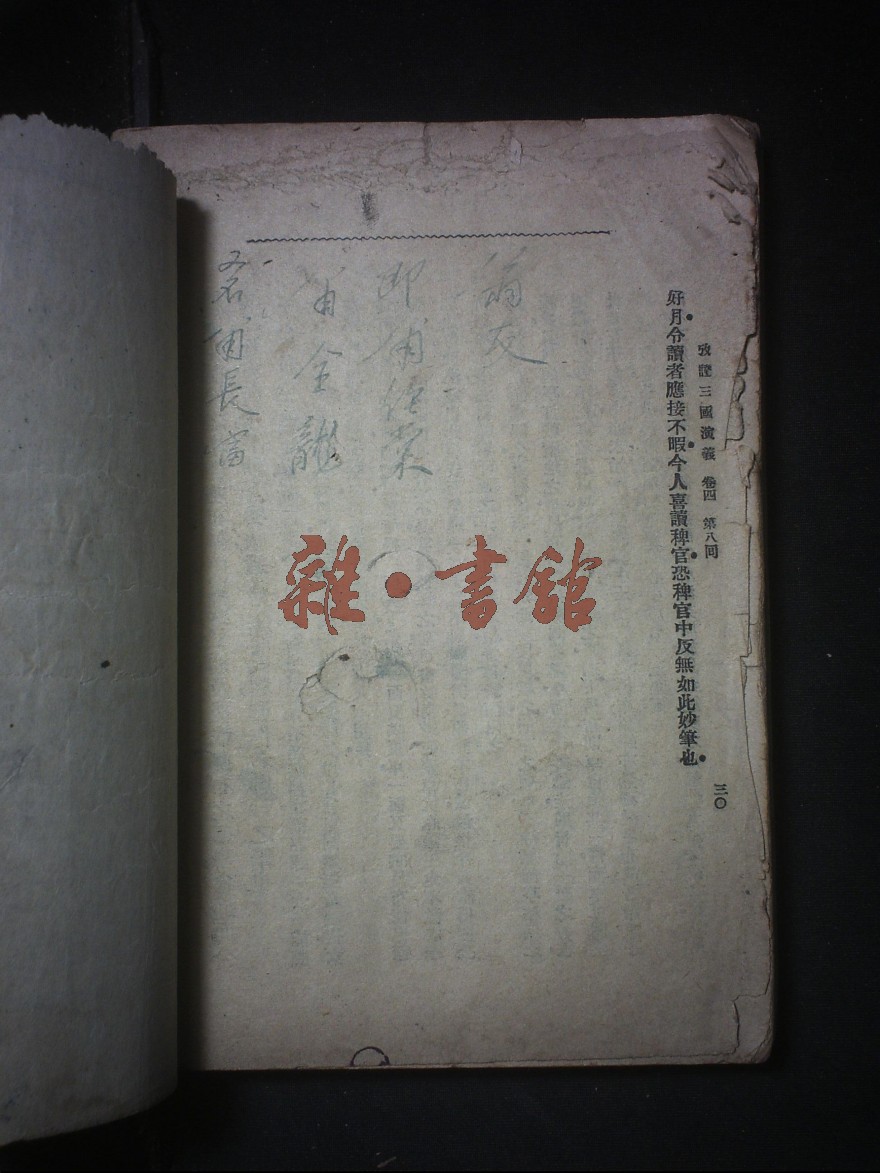 攷證三國演義 卷四 第八回
三〇
好月令讀者應接不暇今人喜讀稗官恐稗官中反無如此妙筆也
友
即
金龍
又名 長富
雜·書館